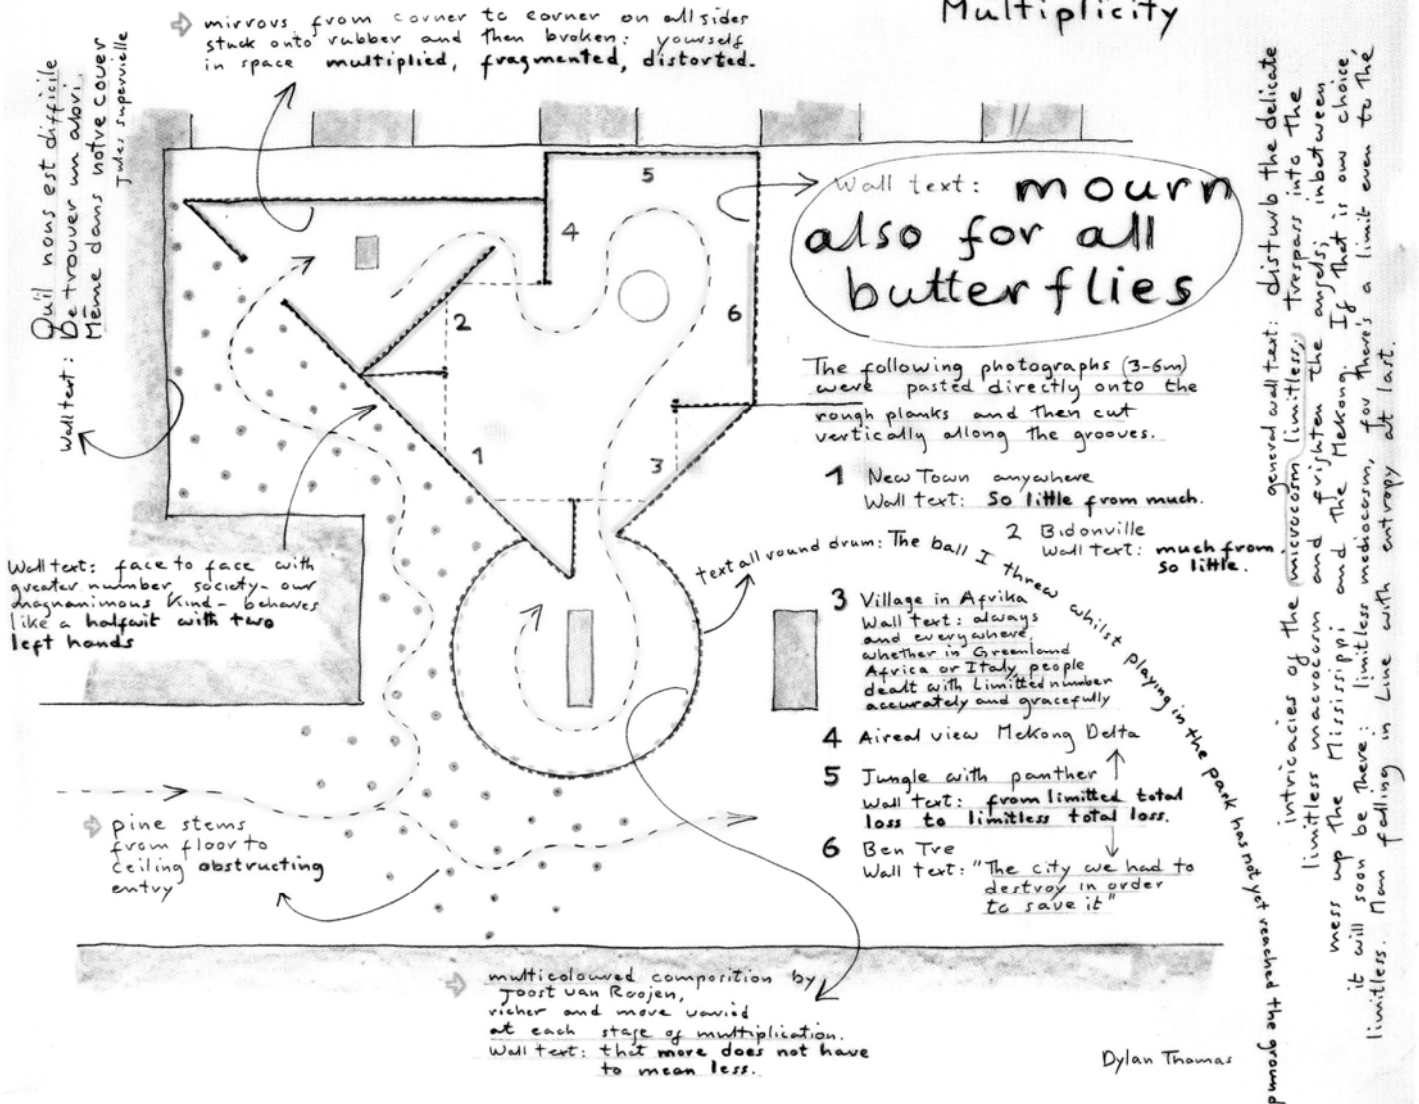 Multiplicity
mirrors from corner to corner on all sides
stuck onto rubber and then broken: yourself
in space multiplied, fragmented, distorted.
Qu'il nous est difficile
De trouver un abri
Même dans notre cœur
Jules Supervielle
Wall text:
5
4
2
6
1
3
Wall text: mourn
also for all
butterflies
The following photographs (3-6m)
were pasted directly onto the
rough planks and then cut
vertically allong the grooves.
1 New Town anywhere
Wall text: So little from much.
2 Bidonville
Wall text: much from
so little.
3 Village in Afrika
Wall text: always
and everywhere,
whether in Greenland
Africa or Italy, people
dealt with Limitted number
accurately and gracefully
4 Aireal view Mekong Delta
5 Jungle with panther
Wall text: from limitted total
loss to limitless total loss.
6 Ben Tre
Wall text: "The city we had to
destroy in order
to save it"
Wall text: face to face with
greater number, society - our
magnanimous Kind - behaves
like a halfwit with two
left hands
text all round drum: The ball I threw whilst playing in the park has not yet reached the ground
Dylan Thomas
pine stems
from floor to
ceiling obstructing
entry
multicoloured composition by
Joost van Roojen,
richer and more varied
at each stage of multiplication.
Wall text: that more does not have
to mean less.
general wall text: disturb the delicate
intricacies of the microcosm limitless; trespass into the
limitless macrocosm and frighten the angels; inbetween
mess up the Mississippi and the Mekong. If that is our choice,
it will soon be there: limitless mediocosm, for there's a limit even to the
limitless. Man falling in Line with entropy at last.